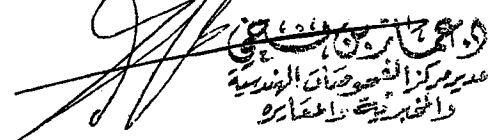 د. عمار بن
مدير مركز الفحوصات الهندسية
والمخبرية والمعايرة